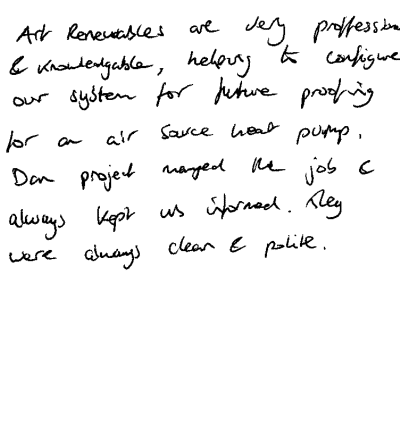 Art Renewables are very proffession
& knowledgable, helping to configure
our system for future proofing
for an air source heat pump.
Dan project managed the job &
always kept us informed. They
were always clean & polite.